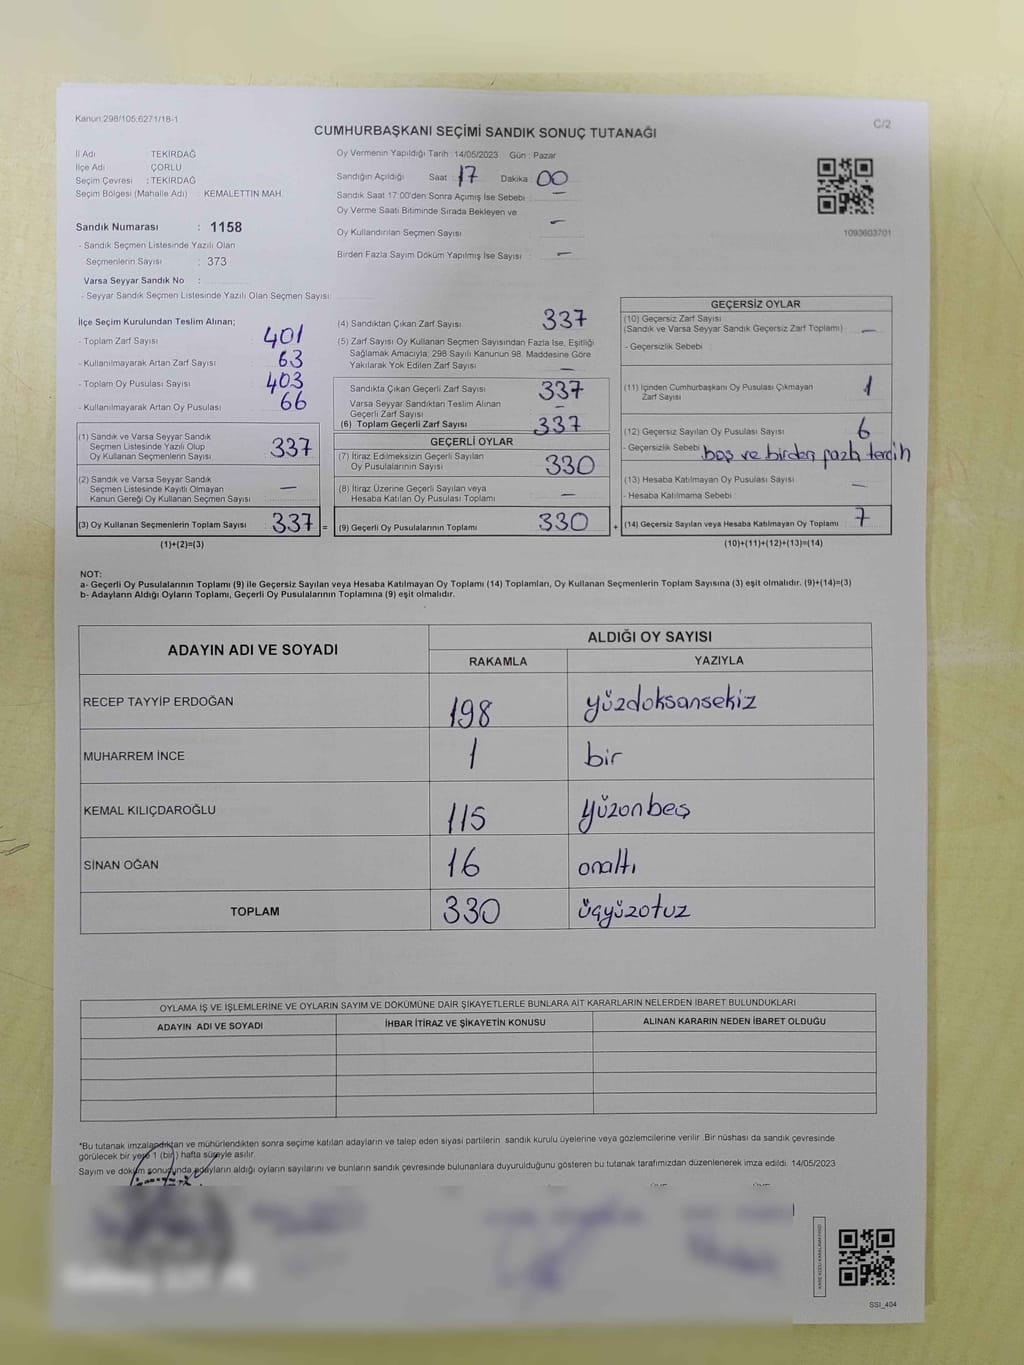 Kanun:298/105;6271/18-1
C/2
CUMHURBAŞKANI SEÇİMİ SANDIK SONUÇ TUTANAĞI
İl Adı : TEKİRDAĞ
İlçe Adı : ÇORLU
Seçim Çevresi : TEKİRDAĞ
Seçim Bölgesi (Mahalle Adı) : KEMALETTİN MAH.
Sandık Numarası : 1158
- Sandık Seçmen Listesinde Yazılı Olan
Seçmenlerin Sayısı : 373
Varsa Seyyar Sandık No :
- Seyyar Sandık Seçmen Listesinde Yazılı Olan Seçmen Sayısı:
Oy Vermenin Yapıldığı Tarih : 14/05/2023 Gün : Pazar
Sandığın Açıldığı Saat : 17 Dakika 00
Sandık Saat 17:00'den Sonra Açımış İse Sebebi : —
Oy Verme Saati Bitiminde Sırada Bekleyen ve
Oy Kullandırılan Seçmen Sayısı : —
Birden Fazla Sayım Döküm Yapılmış İse Sayısı : —
1093603701
İlçe Seçim Kurulundan Teslim Alınan;
- Toplam Zarf Sayısı : 401
- Kullanılmayarak Artan Zarf Sayısı : 63
- Toplam Oy Pusulası Sayısı : 403
- Kullanılmayarak Artan Oy Pusulası : 66
(1) Sandık ve Varsa Seyyar Sandık
Seçmen Listesinde Yazılı Olup
Oy Kullanan Seçmenlerin Sayısı 337
(2) Sandık ve Varsa Seyyar Sandık
Seçmen Listesinde Kayıtlı Olmayan
Kanun Gereği Oy Kullanan Seçmen Sayısı —
(3) Oy Kullanan Seçmenlerin Toplam Sayısı 337 =
(1)+(2)=(3)
(4) Sandıktan Çıkan Zarf Sayısı 337
(5) Zarf Sayısı Oy Kullanan Seçmen Sayısından Fazla İse, Eşitliği
Sağlamak Amacıyla; 298 Sayılı Kanunun 98. Maddesine Göre
Yakılarak Yok Edilen Zarf Sayısı —
Sandıkta Çıkan Geçerli Zarf Sayısı 337
Varsa Seyyar Sandıktan Teslim Alınan
Geçerli Zarf Sayısı —
(6) Toplam Geçerli Zarf Sayısı 337
GEÇERLİ OYLAR
(7) İtiraz Edilmeksizin Geçerli Sayılan
Oy Pusulalarının Sayısı 330
(8) İtiraz Üzerine Geçerli Sayılan veya
Hesaba Katılan Oy Pusulası Toplamı —
(9) Geçerli Oy Pusulalarının Toplamı 330 +
GEÇERSİZ OYLAR
(10) Geçersiz Zarf Sayısı
(Sandık ve Varsa Seyyar Sandık Geçersiz Zarf Toplamı) —
- Geçersizlik Sebebi :
(11) İçinden Cumhurbaşkanı Oy Pusulası Çıkmayan
Zarf Sayısı 1
(12) Geçersiz Sayılan Oy Pusulası Sayısı 6
- Geçersizlik Sebebi : boş ve birden fazla tercih
(13) Hesaba Katılmayan Oy Pusulası Sayısı : —
- Hesaba Katılmama Sebebi :
(14) Geçersiz Sayılan veya Hesaba Katılmayan Oy Toplamı 7
(10)+(11)+(12)+(13)=(14)
NOT:
a- Geçerli Oy Pusulalarının Toplamı (9) ile Geçersiz Sayılan veya Hesaba Katılmayan Oy Toplamı (14) Toplamları, Oy Kullanan Seçmenlerin Toplam Sayısına (3) eşit olmalıdır. (9)+(14)=(3)
b- Adayların Aldığı Oyların Toplamı, Geçerli Oy Pusulalarının Toplamına (9) eşit olmalıdır.
ADAYIN ADI VE SOYADI
ALDIĞI OY SAYISI
RAKAMLA YAZIYLA
RECEP TAYYİP ERDOĞAN 198 yüzdoksansekiz
MUHARREM İNCE 1 bir
KEMAL KILIÇDAROĞLU 115 yüzonbeş
SİNAN OĞAN 16 onaltı
TOPLAM 330 üçyüzotuz
OYLAMA İŞ VE İŞLEMLERİNE VE OYLARIN SAYIM VE DÖKÜMÜNE DAİR ŞİKAYETLERLE BUNLARA AİT KARARLARIN NELERDEN İBARET BULUNDUKLARI
ADAYIN ADI VE SOYADI İHBAR İTİRAZ VE ŞİKAYETİN KONUSU ALINAN KARARIN NEDEN İBARET OLDUĞU
*Bu tutanak imzalandıktan ve mühürlendikten sonra seçime katılan adayların ve talep eden siyasi partilerin sandık kurulu üyelerine veya gözlemcilerine verilir. Bir nüshası da sandık çevresinde
görülecek bir yere 1 (bir) hafta süreyle asılır.
Sayım ve döküm sonucunda adayların aldığı oyların sayılarını ve bunların sandık çevresinde bulunanlara duyurulduğunu gösteren bu tutanak tarafımızdan düzenlenerek imza edildi. 14/05/2023
SSI_404